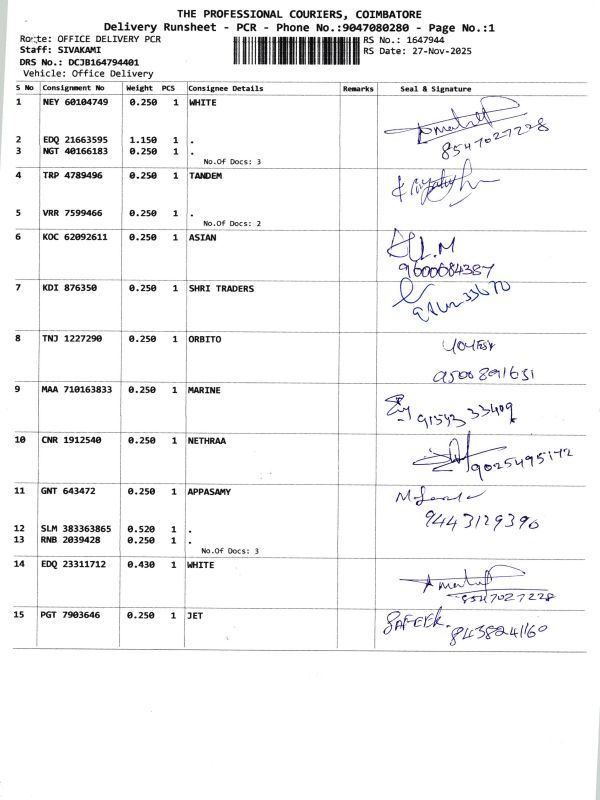 THE PROFESSIONAL COURIERS, COIMBATORE
Delivery Runsheet - PCR - Phone No.:9047080280 - Page No.:1
Route: OFFICE DELIVERY PCR
RS No.: 1647944
Staff: SIVAKAMI
RS Date: 27-Nov-2025
DRS No.: DCJB164794401
Vehicle: Office Delivery
S No Consignment No Weight PCS Consignee Details Remarks Seal & Signature
1 NEY 60104749 0.250 1 WHITE
8547027228
2 EDQ 21663595 1.150 1 .
3 NGT 40166183 0.250 1 .
No.Of Docs: 3
4 TRP 4789496 0.250 1 TANDEM
5 VRR 7599466 0.250 1 .
No.Of Docs: 2
6 KOC 62092611 0.250 1 ASIAN
9600084387
7 KDI 876350 0.250 1 SHRI TRADERS
8 TNJ 1227290 0.250 1 ORBITO
9500891631
9 MAA 710163833 0.250 1 MARINE
91593 33409
10 CNR 1912540 0.250 1 NETHRAA
9025495172
11 GNT 643472 0.250 1 APPASAMY
9443129390
12 SLM 383363865 0.520 1 .
13 RNB 2039428 0.250 1 .
No.Of Docs: 3
14 EDQ 23311712 0.430 1 WHITE
8547027228
15 PGT 7903646 0.250 1 JET
8438241160